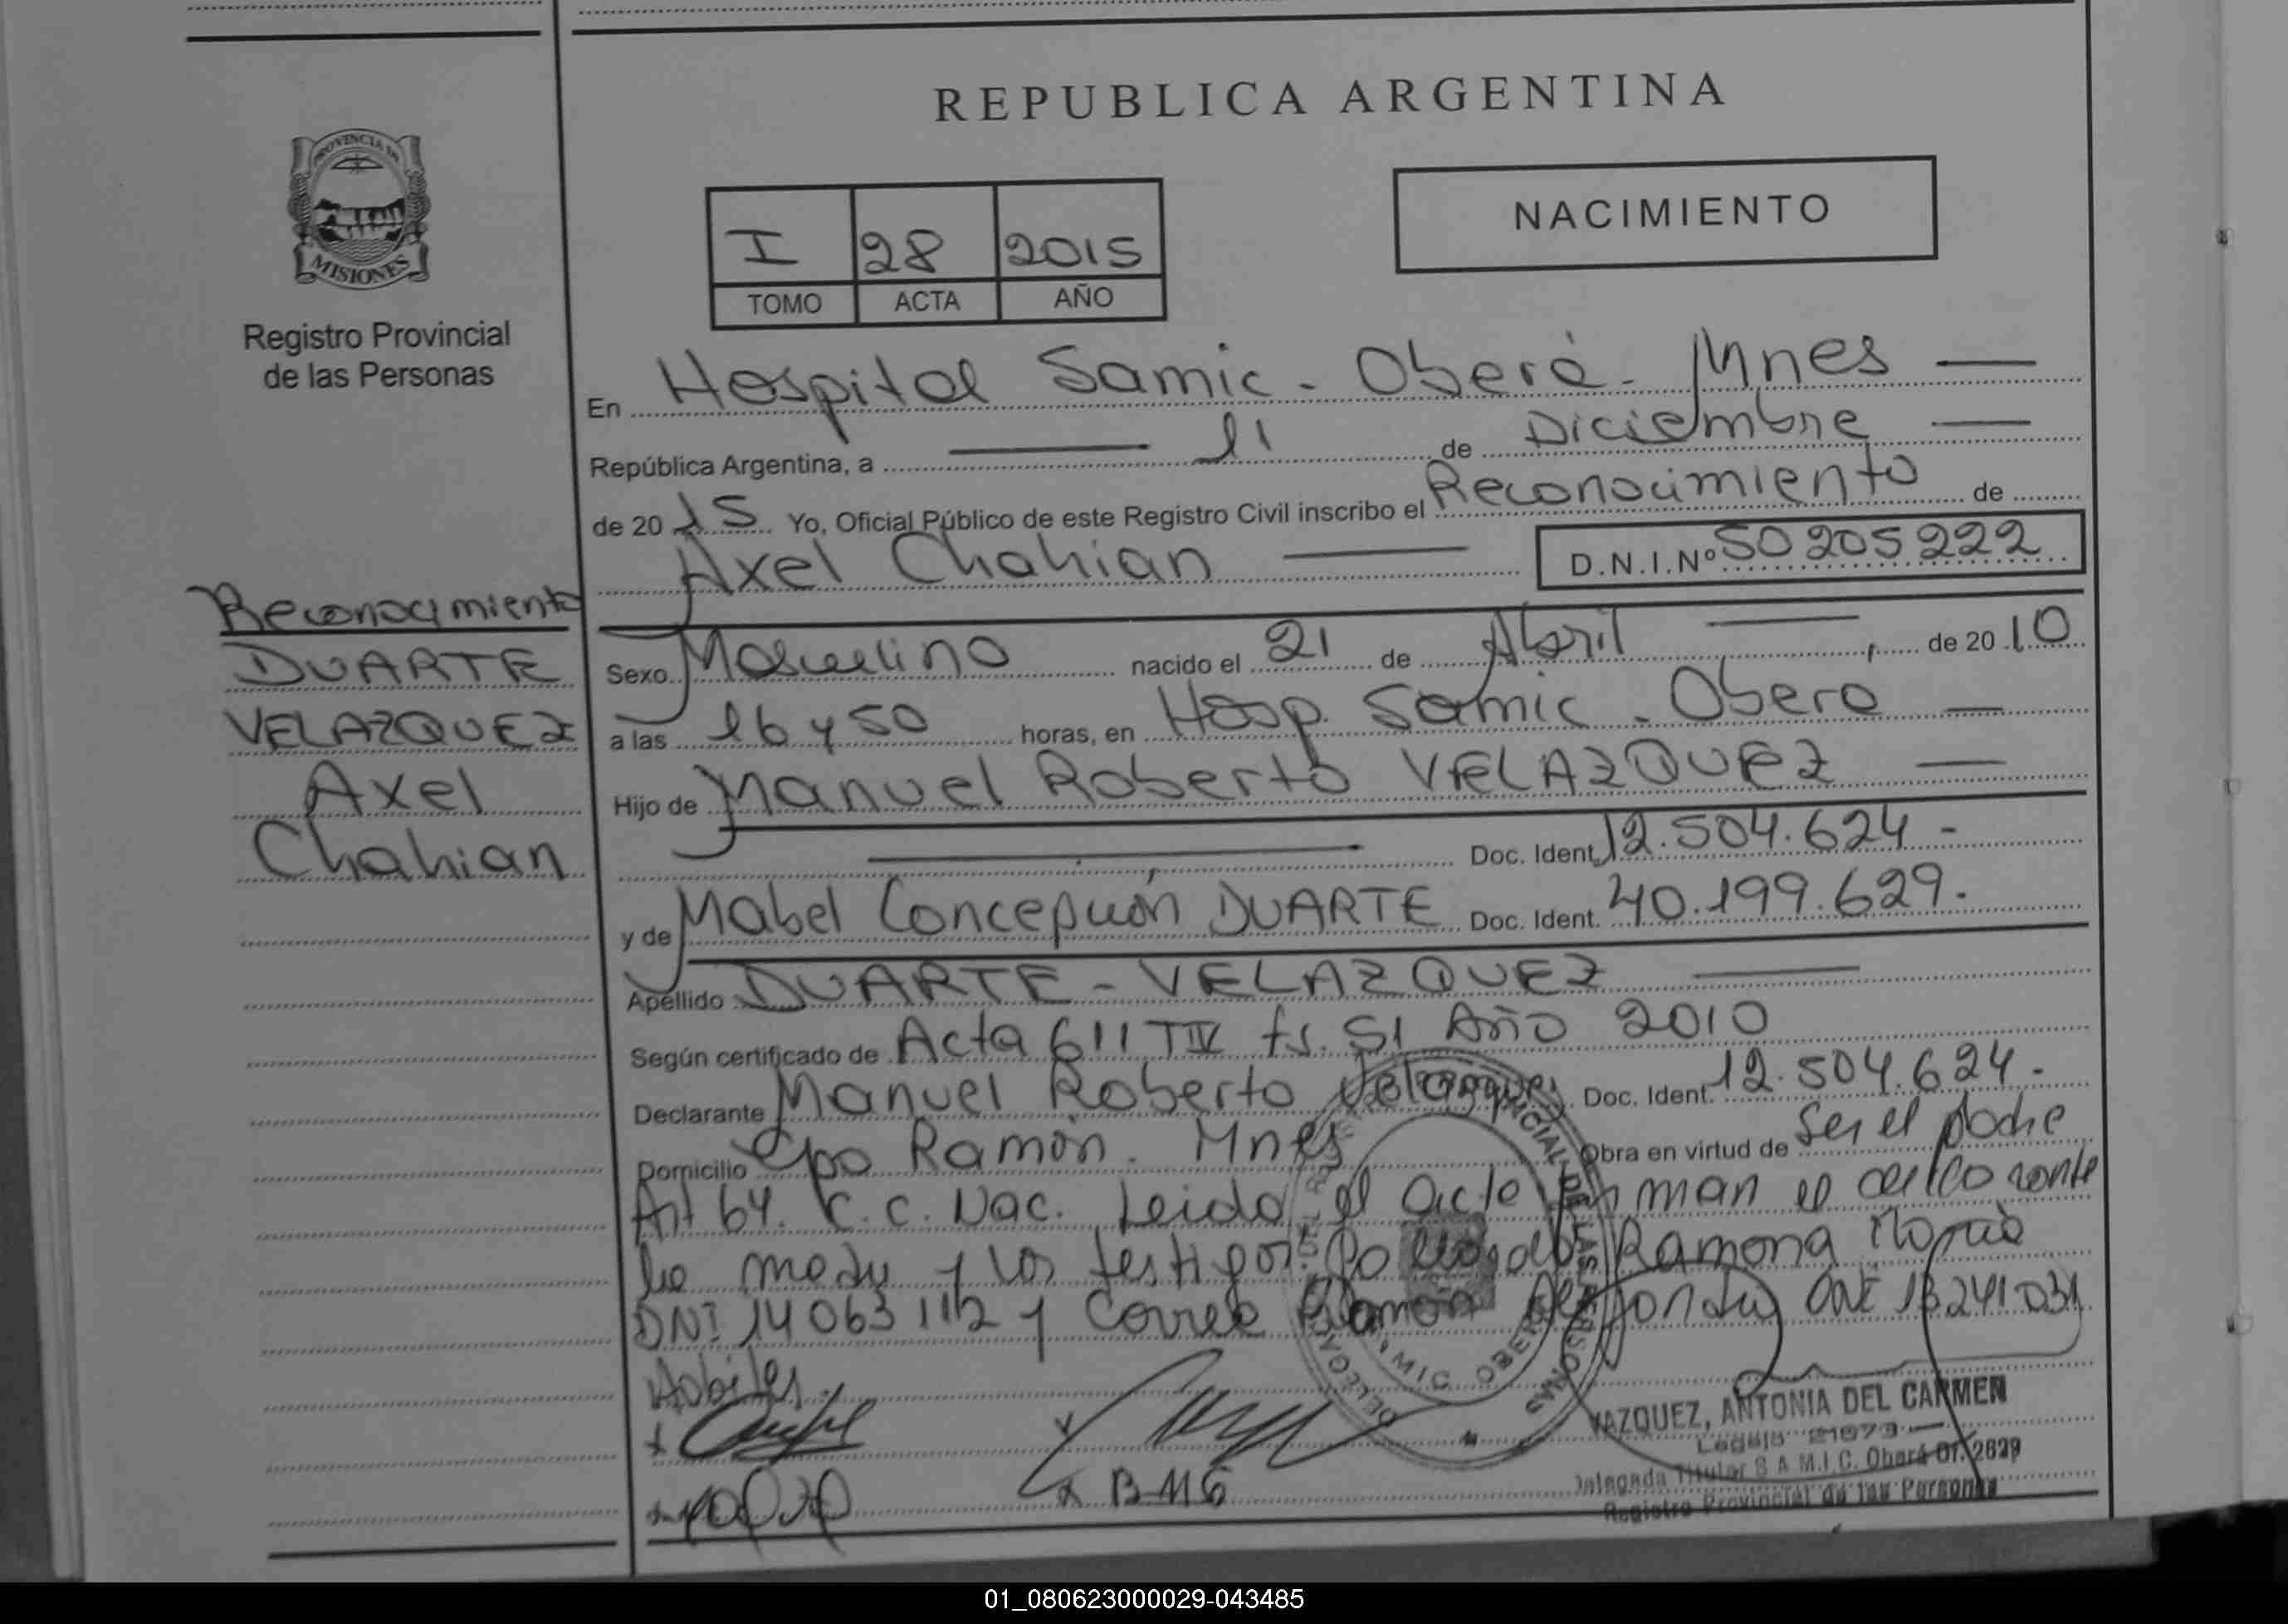 REPUBLICA ARGENTINA
PROVINCIA DE
MISIONES
Registro Provincial
de las Personas
I 28 2015
TOMO ACTA AÑO
NACIMIENTO
En Hospital Samic - Oberá - Mnes
República Argentina, a 11 de Diciembre
de 2015 Yo, Oficial Público de este Registro Civil inscribo el Reconocimiento de
Axel Chahian D.N.I.Nº 50205222
Reconocimiento
DUARTE
VELAZQUEZ
Axel
Chahian
Sexo Masculino nacido el 21 de Abril de 2010
a las 16 y 50 horas, en Hosp. Samic - Obera
Hijo de Manuel Roberto VELAZQUEZ
Doc. Ident. 12.504.624-
y de Mabel Concepción DUARTE Doc. Ident. 40.199.629.
Apellido DUARTE - VELAZQUEZ
Según certificado de Acta 611 TIV fs. 51 Año 2010
Declarante Manuel Roberto Velazquez Doc. Ident. 12.504.624.
Domicilio Cpo Ramón. Mnes Obra en virtud de Ser el padre
Art 64. C.C. Nac. Leida el acta firman el
la madre y los testigos Ramona
DNI 14063112 y Correa Ramón DNI 13241031
Habiles.
X BMG
VAZQUEZ, ANTONIA DEL CARMEN
Legajo 21973
Delegada Titular S.A.M.I.C. Oberá Of. 2629
Registro Provincial de las Personas
01_080623000029-043485